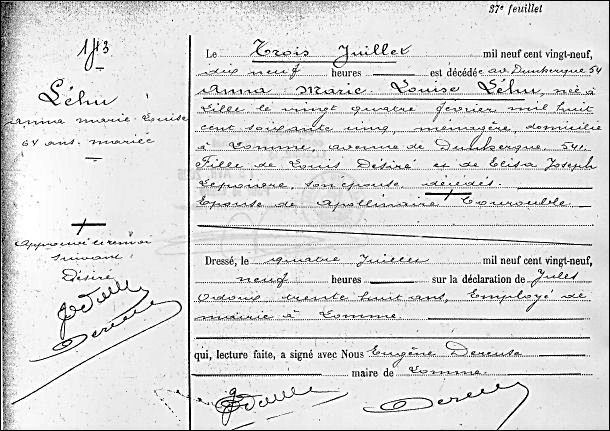 37e feuillet
143
Léhu
Anna Marie Louise
64 ans. mariée
Approuvé le renvoi
suivant
Désiré
Le Trois Juillet mil neuf cent vingt-neuf,
dix neuf heures est décédée av. Dunkerque 541
Anna Marie Louise Léhu, née à
Lille le vingt quatre février mil huit
cent soixante cinq, ménagère, domiciliée
à Lomme, avenue de Dunkerque 541.
Fille de Louis Désiré et de Elisa Joseph
Lepoivre, son épouse décédés.
Epouse de Apollinaire
Dressé, le quatre Juillet mil neuf cent vingt-neuf,
neuf heures sur la déclaration de Jules
Odoux trente huit ans, Employé de
mairie à Lomme
qui, lecture faite, a signé avec Nous Eugène
maire de Lomme